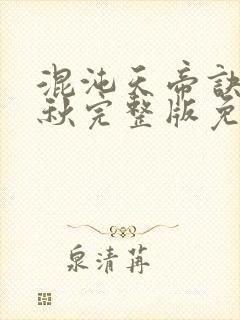 混沌天帝诀
秋完整版免
泉清苒